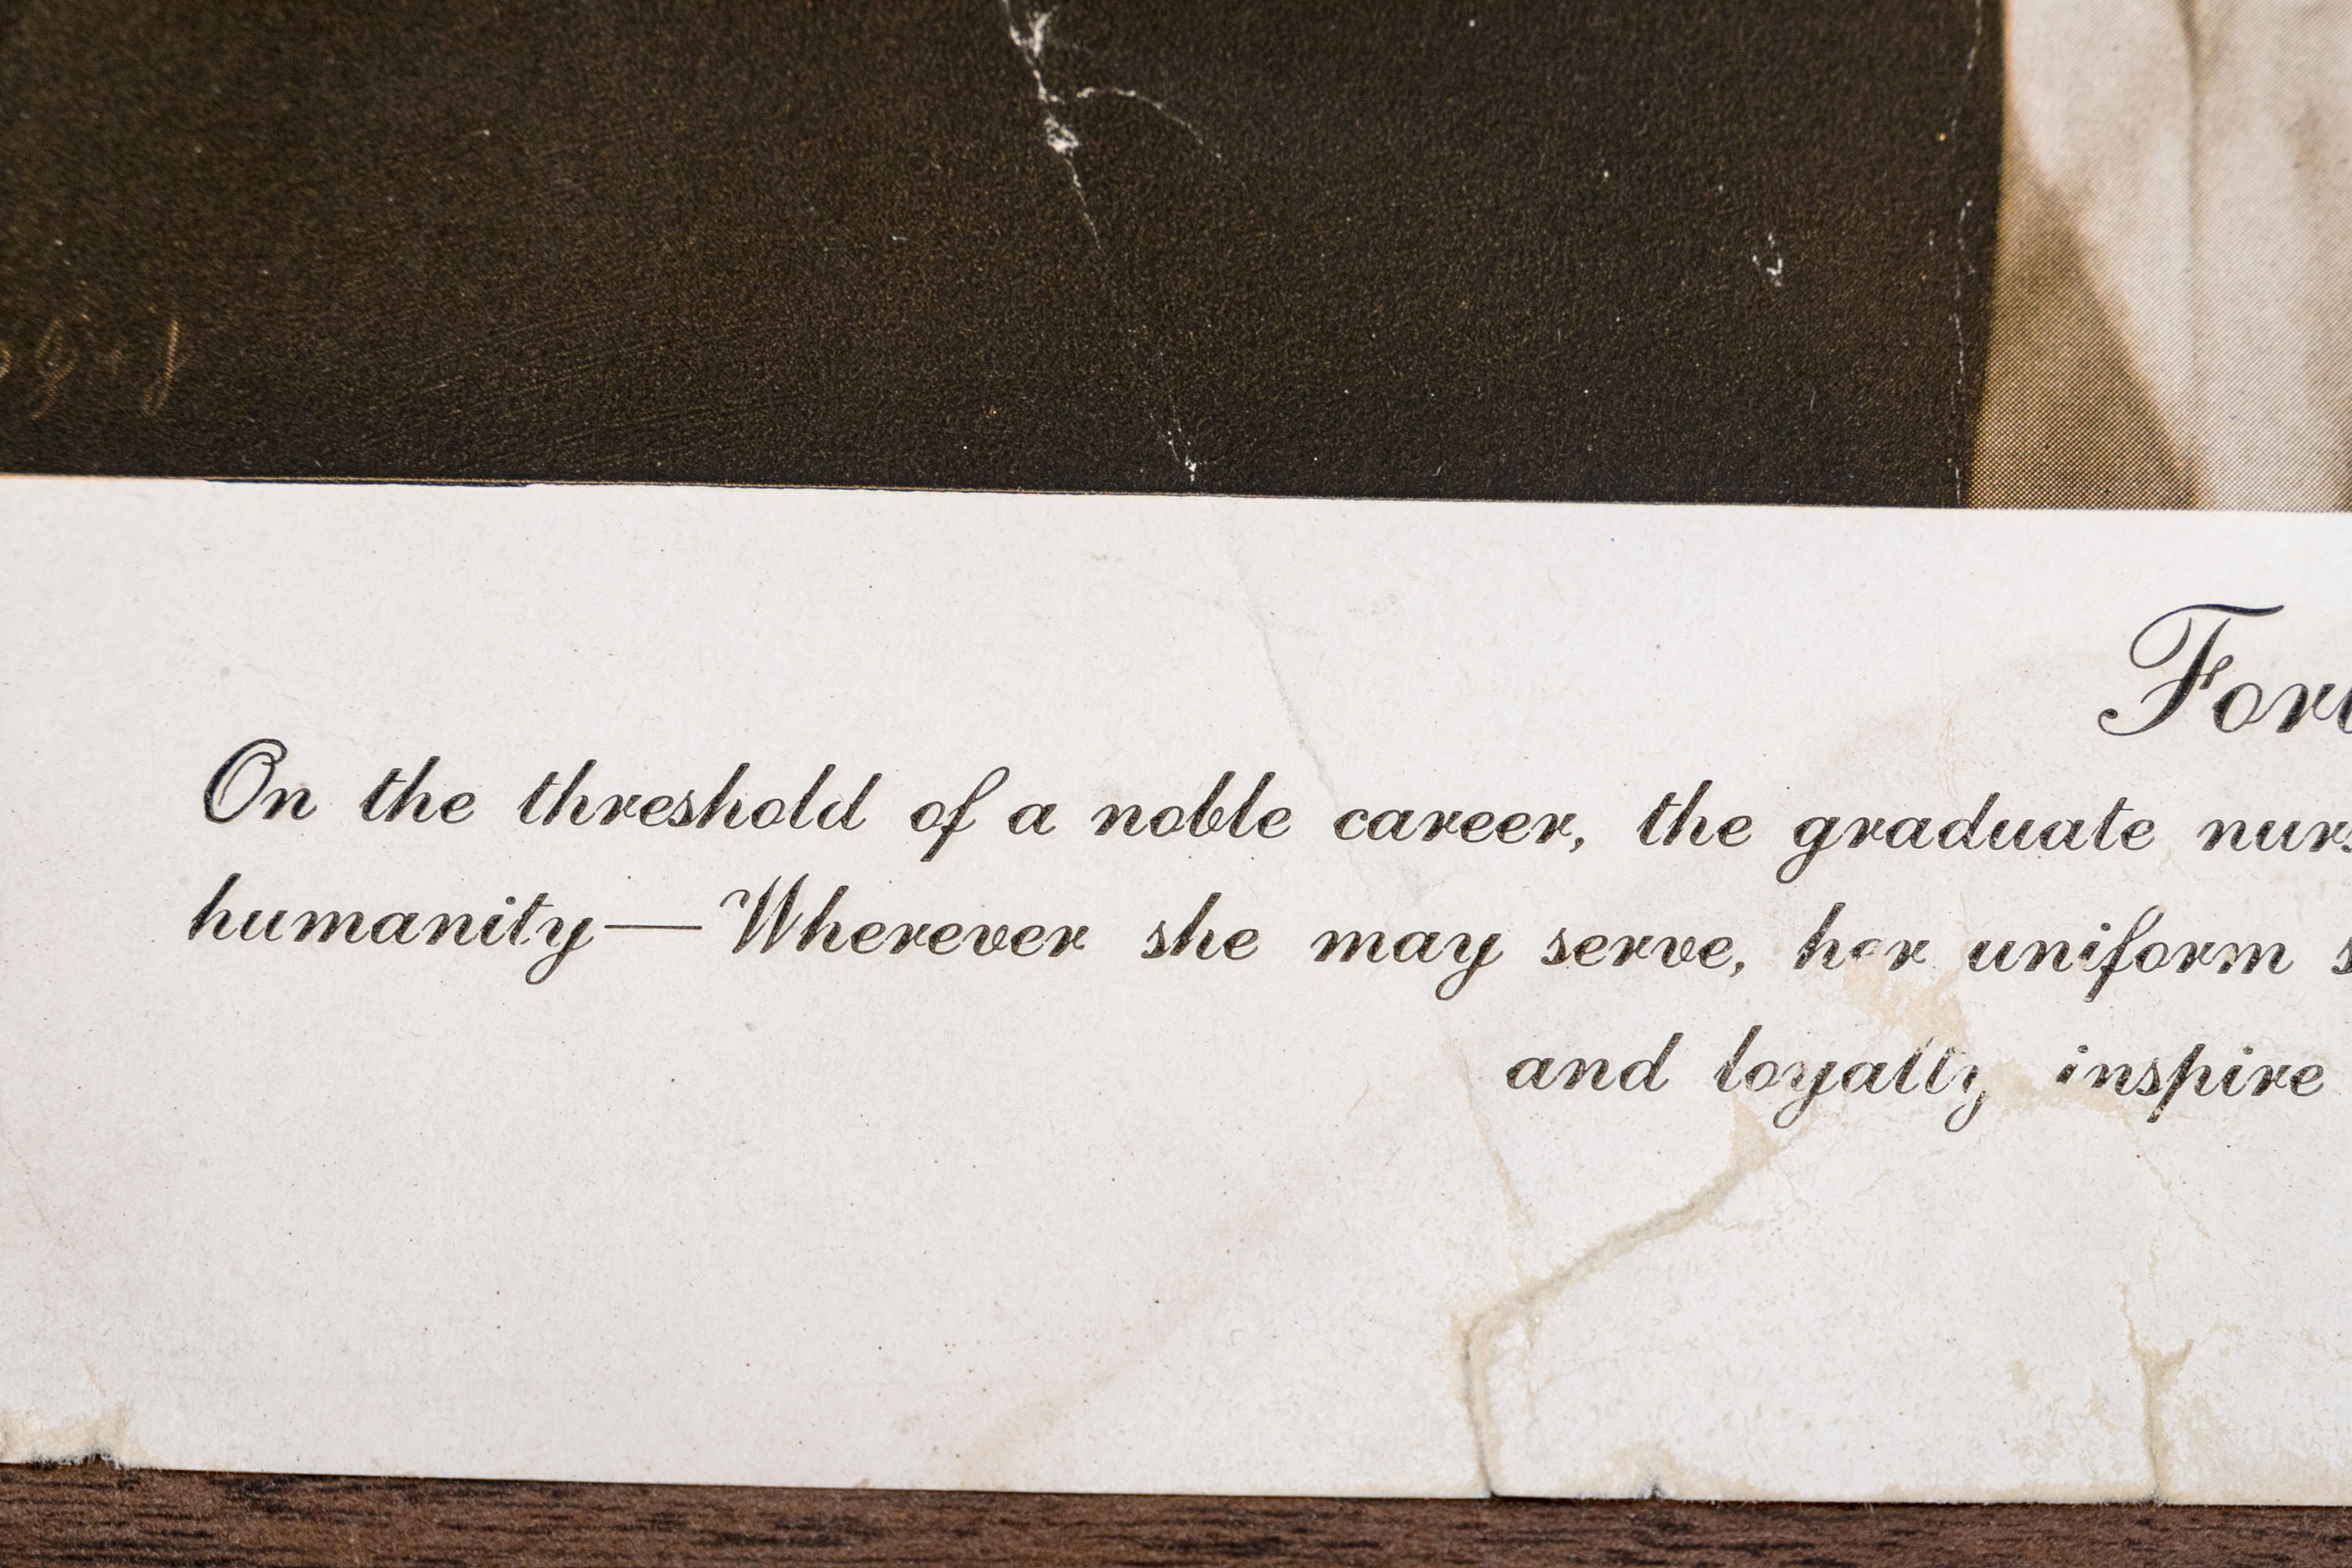 For
On the threshold of a noble career, the graduate nurs
humanity — Wherever she may serve, her uniform s
and loyalty inspire